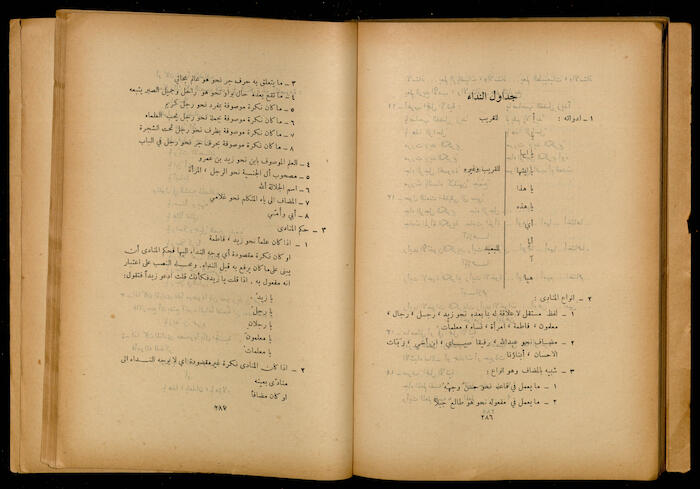 جداول النداء
١ - ادواته : للقريب أ
يا ايها
للقريب وغيره يا ايتها
يا هذا
يا هذه
أي
أيا
للبعيد
آ
هيا
٢ - انواع المنادى :
١ - لفظ مستقل لا علاقة له بما بعده نحو زيد ، رجل ، رجال ،
معلمون ، فاطمة ، امرأة ، نساء ، معلمات
٢ - مضاف نحو عبدالله ، رفيقا صباي ، ابن أخي ، ربات
الاحسان ، أبناؤنا
٣ - شبيه بالمضاف وهو انواع :
١ - ما يعمل في فاعله نحو حسن وجهه
٢ - ما يعمل في مفعوله نحو هو طالع جبلاً
٢٨٦
٣ - ما يتعلق به حرف جر نحو هو عالم بحالتي
٤ - ما تقع بعده حال واو نحو هو راحل وجميل الصبر يتبعه
٥ - ما كان نكرة موصوفة بمفرد نحو رجل كريم
٦ - ما كان نكرة موصوفة بجملة نحو رجل يحب العلماء
٧ - ما كان نكرة موصوفة بظرف نحو رجل تحت الشجرة
٨ - ما كان نكرة موصوفة بحرف جر نحو رجل في الباب
٤ - العلم الموصوف بابن نحو زيد بن عمرو
٥ - مصحوب أل الجنسية نحو الرجل ، المرأة
٦ - اسم الجلالة الله
٧ - المضاف الى ياء المتكلم نحو غلامي
٨ - أبي وأمي
٣ - حكم المنادى
١ - اذا كان علماً نحو زيد ، فاطمة
او كان نكرة مقصودة أي يوجه النداء اليها فحكم المنادى أن
يبنى على ما كان يرفع به قبل النداء . ومحله النصب على اعتبار
انه مفعول به . اذا قلت يا زيد فكأنك قلت ادعو زيداً فتقول :
يا زيدُ
يا رجلُ
يا رجلان
يا معلمون
يا معلماتُ
٢ - اذا كان المنادى نكرة غير مقصودة اي لا يوجه النداء الى
منادى بعينه
او كان مضافاً
٢٨٧